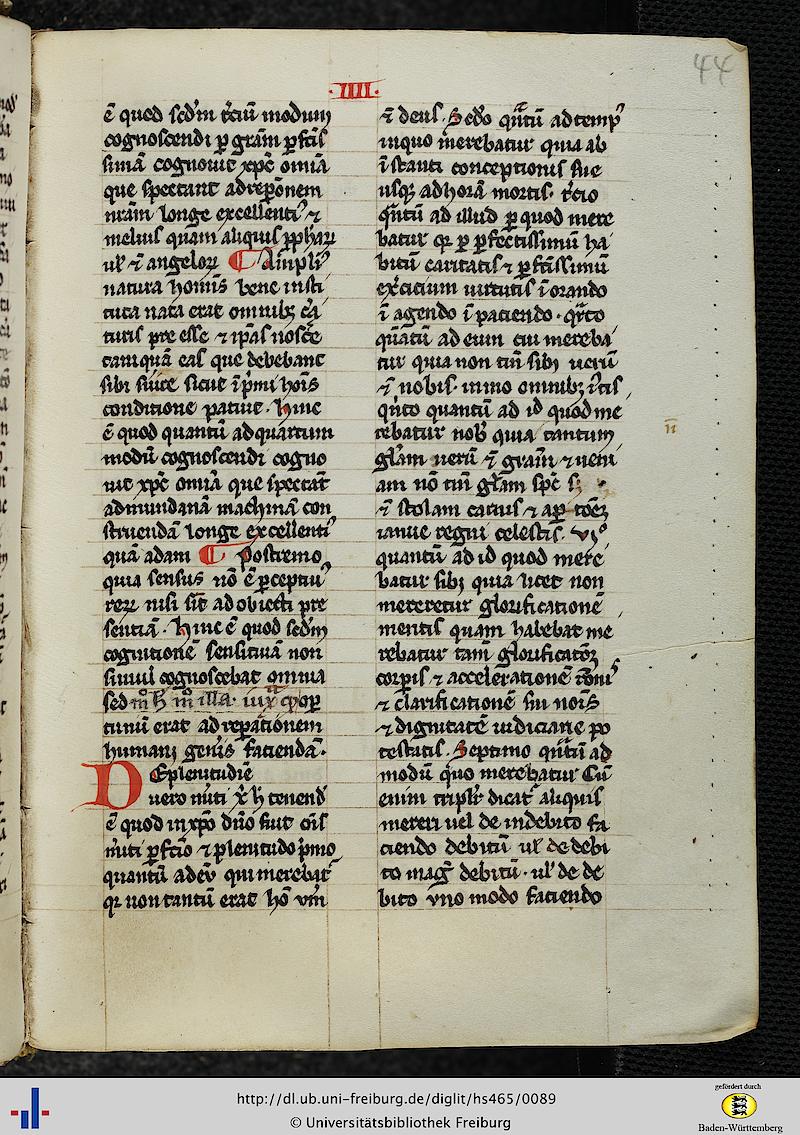 44
·IIII·
ē quod scd'm t'ciū modum
cognoscendi p̱ grām p̱fc̄is
simā cognouit xp̄c omīa
que spectant ad rep̄onem
nrām longe excellenti᾽ ⁊
melius quam aliquis pp̄harꝝ
ul' ⁊ angeloꝝ ¶ Ampli᾽
natura homīs bene insti
tuta nata erat omnibꝫ c̄a
turis pre esse ⁊ ip̄as nosce
tamquā eas que debebant
sibi s̄uire sicut ī p̄mi hoīs
conditione patuit. hinc
ē quod quantū ad quārtum
modū cognoscendi cogno
uit xp̄c omīa que spectāt
ad mundanā machinā con
struendā longe excellenti᾽
quā adam ¶ Postremo
quia sensus nō ē p̱ceptiu᾽
reꝝ nisi sīt ad obiecti pre
sentiā. Hinc ē quod scd'm
cognitionē sensitiuā non
simul cognoscebat omnia
sed illa. iux̄
tunū erat ad rep̄ationem
humani gen̄is faciendā.
DE plenitudīe
uero m̄iti x̄ h̄ tenend̄
ē quod in xp̄o dn̄o fuit oīs
m̄iti p̱fc̄io ⁊ plenitudo p̄mo
quantū ad eū qui merebat᾽
qꝛ non tantū erat hō vm̄
⁊ deus. Scd̄o qn̄tū ad temp᾽
in quo merebatur quia ab
īstanti conceptionis sue
usqꝫ ad horā mortis. t'cio
qn̄tū ad illud p̱ quod mere
batur qꝛ p̱ p̱fectissimū ha
bitū caritatis ⁊ p̱fc̄issimū
ex̄citium uirtutis ī orando
ī agendo ī paciendo. q̄rto
quātū ad eum cui mereba
tur quia non tm̄ sibi uerū
⁊ nobis. immo omnibꝫ
q̄nto quantū ad id quod me
rebatur nob᾽ quia tantum
gl̄am uerū ⁊ grām ⁊ ueni
am nō tm̄ gl̄am sp̄c
⁊ stolam carnis ⁊ ap̱ tōeꝫ
ianue regni celestis. vj᾽
quantū ad id quod mere
batur sibi quia licet non
mereretur glorificationē
mentis quam habebat me
rebatur tam̄ glorificatōeꝫ
corp̱is ⁊ accelerationē
⁊ clarificationē sui noīs
⁊ dignitatē iudiciarie po
testatis. Septimo qn̄tū ad
modū quo merebatur Cū
enim tripl'r dicat᾽ aliquis
mereri uel de indebito fa
ciendo debitū ul' de debi
to mag' debitū. ul' de de
bito vno modo faciendo
http://dl.ub.uni-freiburg.de/diglit/hs465/0089
© Universitätsbibliothek Freiburg
gefördert durch
Baden-Württemberg